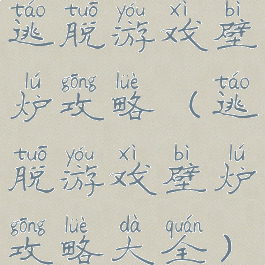 táo tuō yóu xì bì
逃脱游戏壁
lú gōng lüè táo
炉攻略（逃
tuō yóu xì bì lú
脱游戏壁炉
gōng lüè dà quán
攻略大全）